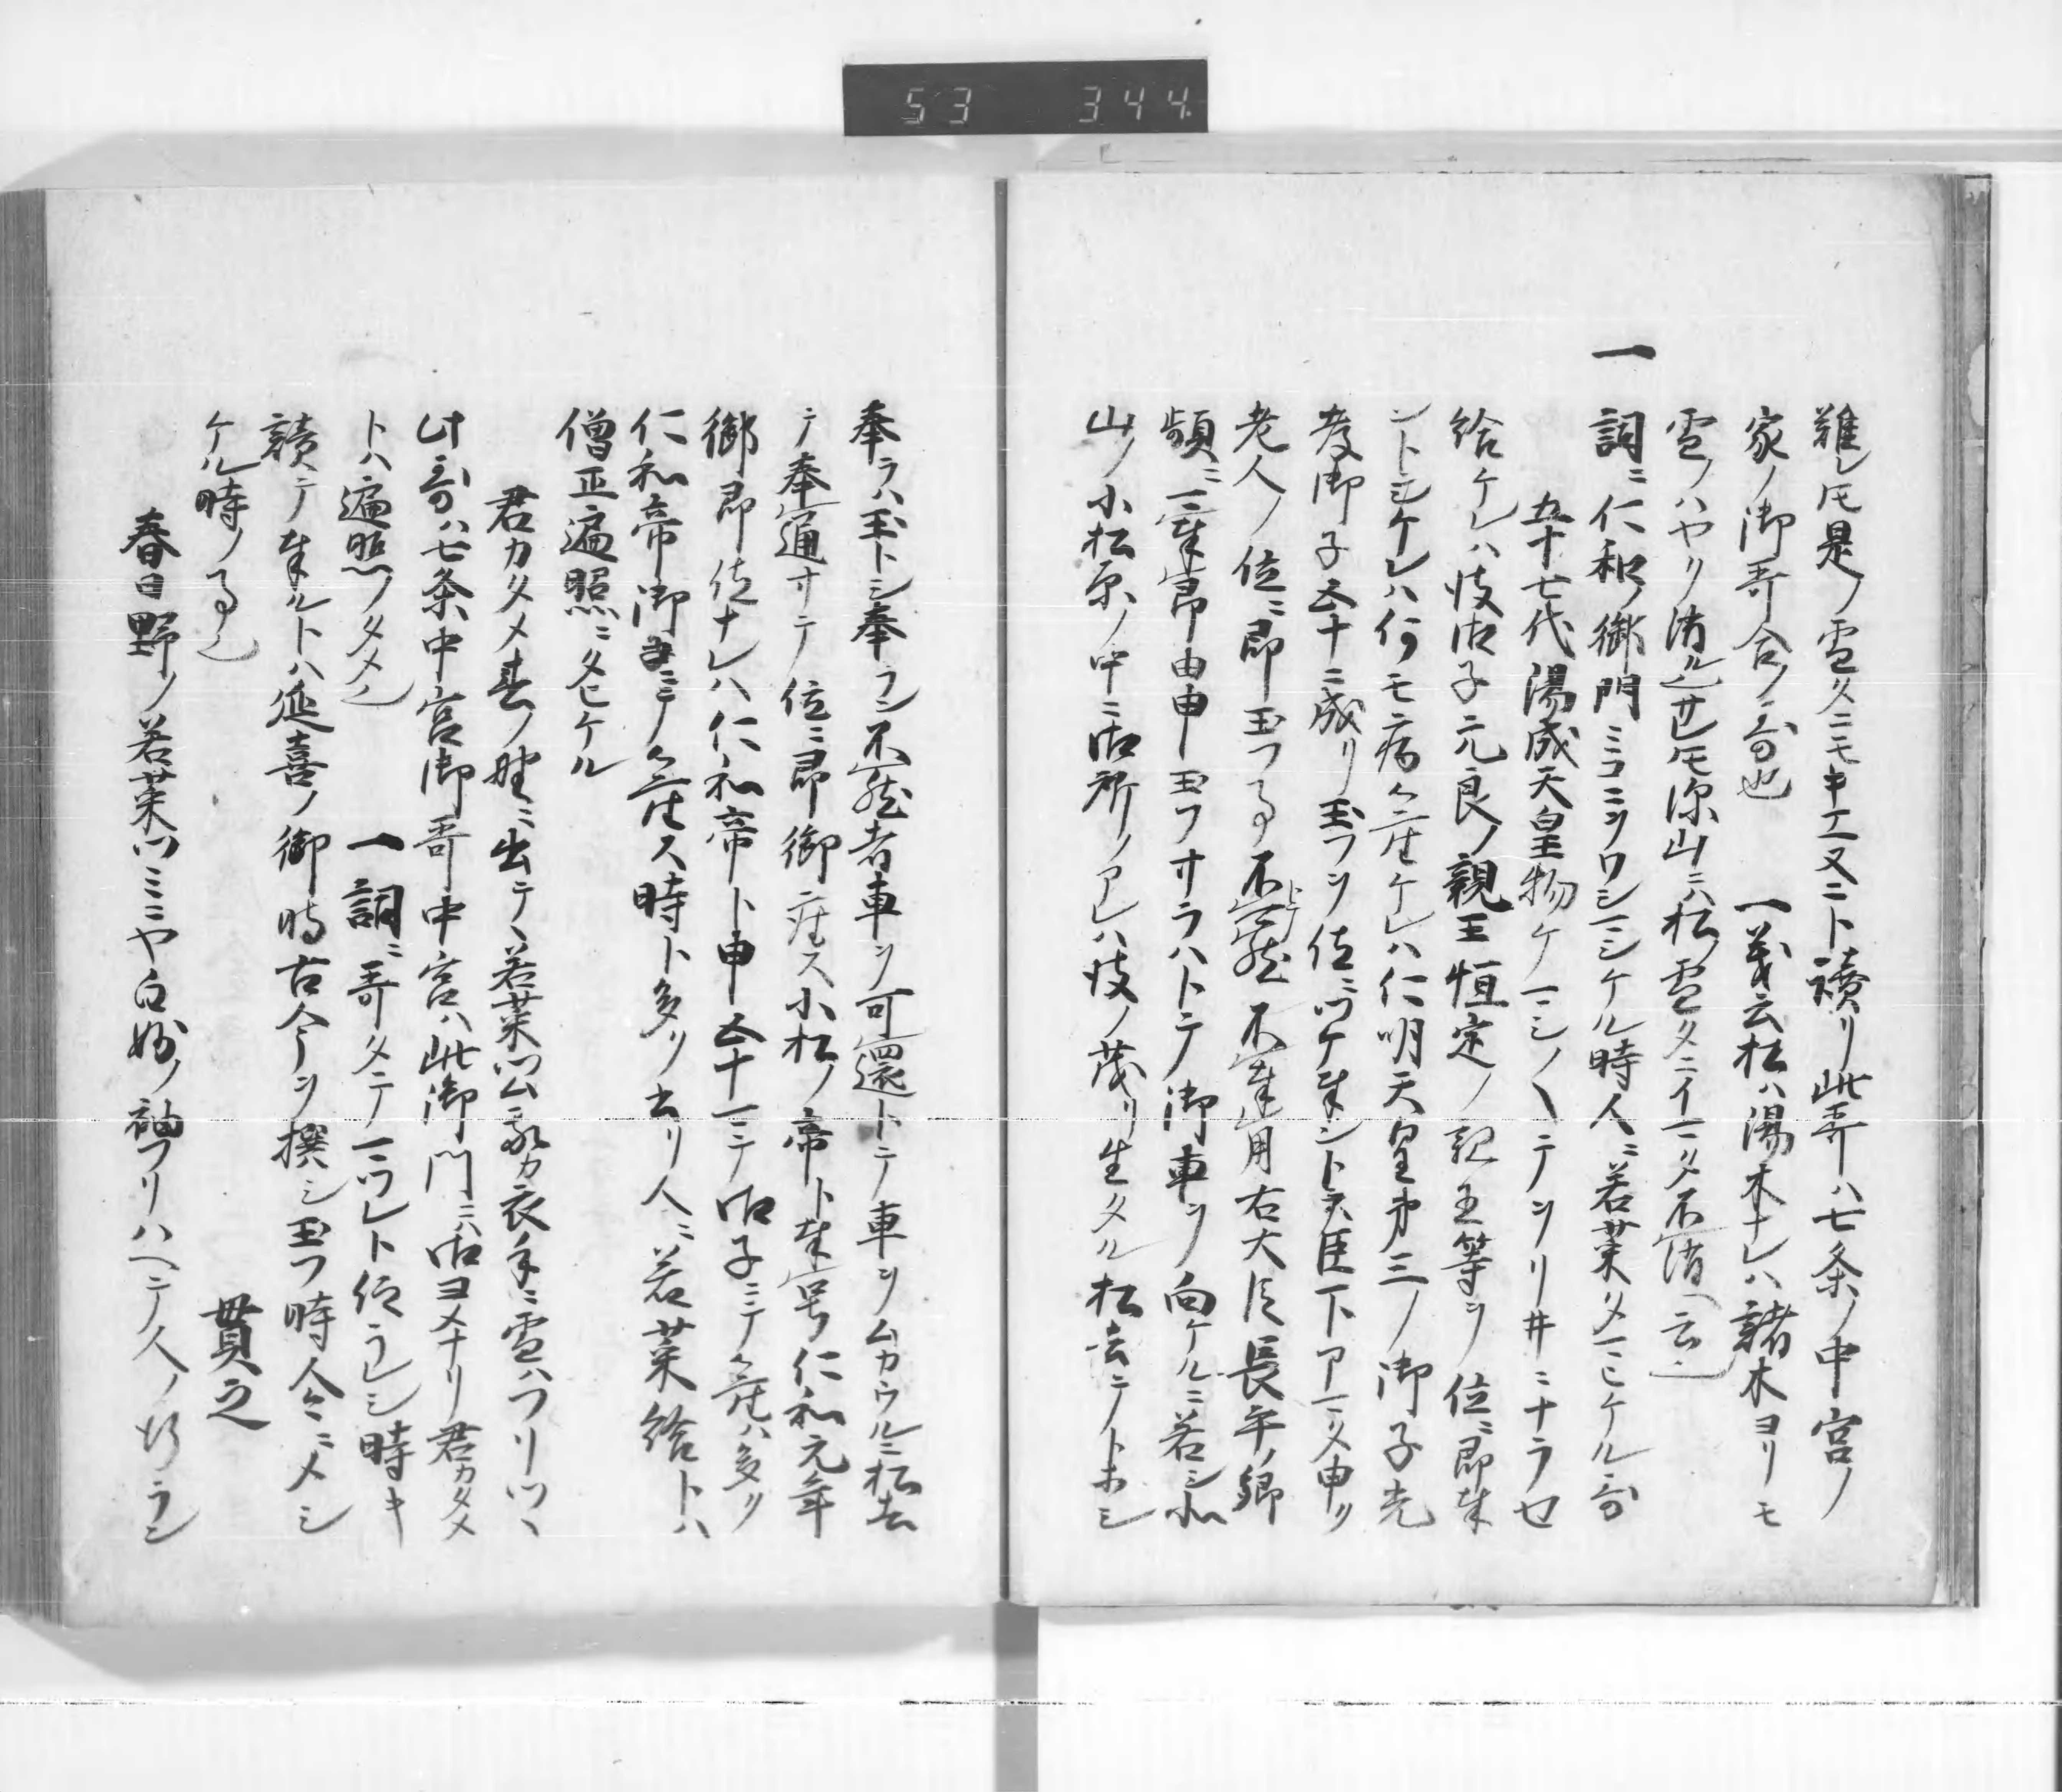 53 344
難レ𪜈是ノ雪タニモキエ又ニト讀リ此哥ハ七条ノ中宮ノ
家ノ御哥合ノ哥也 一義云松ハ陽木ナレハ諸木ヨリモ
雪ノハヤク消ル也サレ𪜈深山ニハ松ノ雪タニイマタ不消ト云也
一 詞ニ仁和ノ御門ミコニヲワシマシケル時人ニ若菜タマヒケル哥
五十七代陽成天皇物ケマシ〱テヲリ井ニナラセ
給ケレハ彼御子元良ノ親王恒定ノ親王等ヲ位ニ即奉
ントシケレハ何モ病ク座ケレハ仁明天皇第三ノ御子光
孝御子五十ニ成リ玉フヲ位ニツケ奉ント大臣下アマタ申ク
老人ノ位ニ即玉フ事不可然不可用右大臣長年ノ卿
頻ニ可奉当由申玉フサラハトテ御車ヲ向ケルニ若シ小
山ノ小松原ノ中ニ御所ノアレハ彼ノ茂リ生タル松去テトホシ
奉ラハ玉トシ奉ラン不然者車ヲ可還トテ車ヲムカウルニ松去
テ奉通サテ位ニ即御座ス小松ノ帝ト奉号仁和元年
御即位ナレハ仁和帝ト申五十一ニテ御子ニテ座ハ多ク
仁和帝御子ニテ座ス時ト多ク云リ人ニ若菜給トハ
僧正遍照ニタヒケル
君カタメ春ノ野ニ出テ丶若菜ツム我カ衣手ニ雪ハフリツ丶
此哥ハ七条中宮御哥中宮ハ此御門ニハ御ヨメナリ君カタメ
トハ遍照ノタメ也 一詞ニ哥タテマツレト仰ラレシ時キ
讀テ奉ルトハ延喜ノ御時古今ヲ撰シ玉フ時人々ニメシ
ケル時ノ事也 貫之
春日野ノ若菜ツミニヤ白妙ノ袖フリハヘテ人ノ行ラン